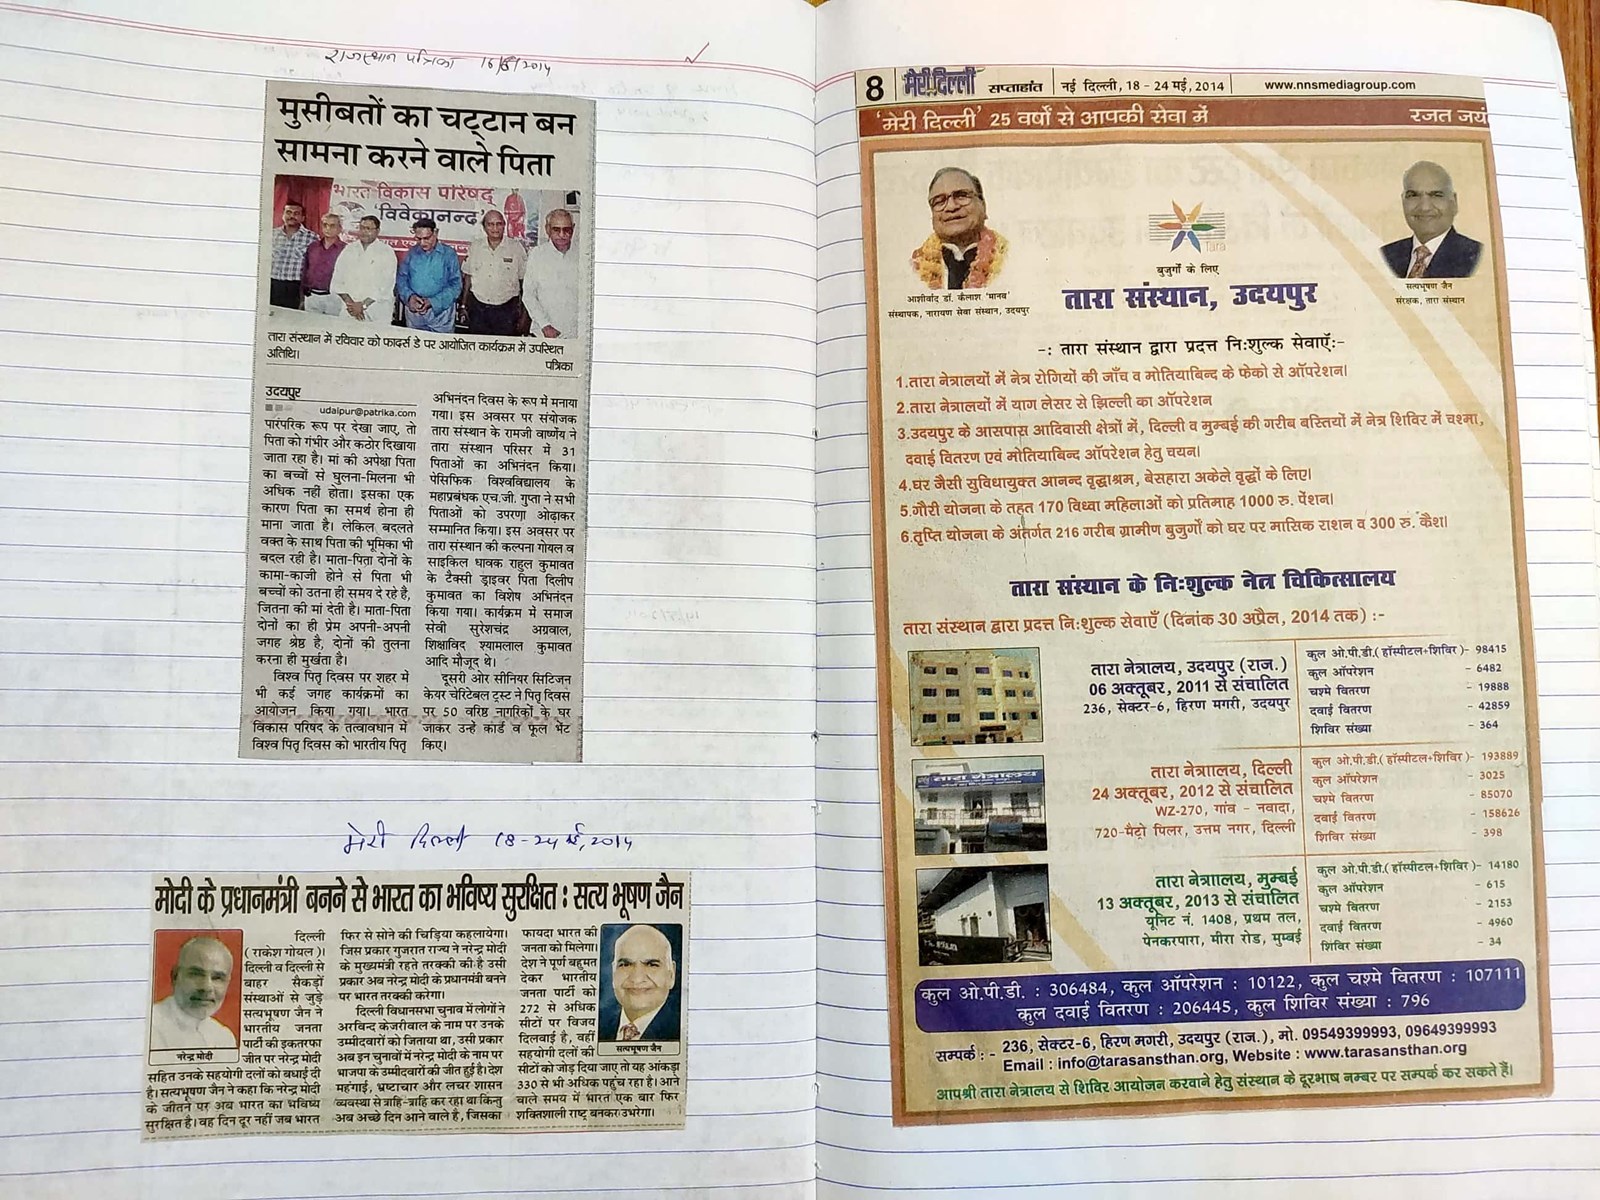 राजस्थान पत्रिका 16/6/2014
मुसीबतों का चट्टान बन
सामना करने वाले पिता
भारत विकास परिषद्
'विवेकानन्द'
तारा संस्थान में रविवार को फादर्स डे पर आयोजित कार्यक्रम में उपस्थित
अतिथि।
पत्रिका
उदयपुर
udaipur@patrika.com
पारंपरिक रूप पर देखा जाए, तो
पिता को गंभीर और कठोर दिखाया
जाता रहा है। मां की अपेक्षा पिता
का बच्चों से घुलना-मिलना भी
अधिक नहीं होता। इसका एक
कारण पिता का समर्थ होना ही
माना जाता है। लेकिन बदलते
वक्त के साथ पिता की भूमिका भी
बदल रही है। माता-पिता दोनों के
कामा-काजी होने से पिता भी
बच्चों को उतना ही समय दे रहे है,
जितना की मां देती है। माता-पिता
दोनों का ही प्रेम अपनी-अपनी
जगह श्रेष्ठ है, दोनों की तुलना
करना ही मुर्खता है।
विश्व पितृ दिवस पर शहर में
भी कई जगह कार्यक्रमों का
आयोजन किया गया। भारत
विकास परिषद के तत्वावधान में
विश्व पितृ दिवस को भारतीय पितृ
अभिनंदन दिवस के रूप में मनाया
गया। इस अवसर पर संयोजक
तारा संस्थान के रामजी वार्ष्णेय ने
तारा संस्थान परिसर में 31
पिताओं का अभिनंदन किया।
पेसिफिक विश्वविद्यालय के
महाप्रबंधक एच.जी. गुप्ता ने सभी
पिताओं को उपरणा ओढ़ाकर
सम्मानित किया। इस अवसर पर
तारा संस्थान की कल्पना गोयल व
साइकिल धावक राहुल कुमावत
के टैक्सी ड्राइवर पिता दिलीप
कुमावत का विशेष अभिनंदन
किया गया। कार्यक्रम में समाज
सेवी सुरेशचंद्र अग्रवाल,
शिक्षाविद श्यामलाल कुमावत
आदि मौजूद थे।
दूसरी ओर सीनियर सिटिजन
केयर चेरिटेबल ट्रस्ट ने पितृ दिवस
पर 50 वरिष्ठ नागरिकों के घर
जाकर उन्हें कार्ड व फूल भेंट
किए।
मेरी दिल्ली 18-24 मई, 2014
मोदी के प्रधानमंत्री बनने से भारत का भविष्य सुरक्षित : सत्य भूषण जैन
नरेन्द्र मोदी
दिल्ली
(राकेश गोयल)।
दिल्ली व दिल्ली से
बाहर सैकड़ों
संस्थाओं से जुड़े
सत्यभूषण जैन ने
भारतीय जनता
पार्टी की इकतरफा
जीत पर नरेन्द्र मोदी
सहित उनके सहयोगी दलों को बधाई दी
है। सत्यभूषण जैन ने कहा कि नरेन्द्र मोदी
के जीतने पर अब भारत का भविष्य
सुरक्षित है। वह दिन दूर नहीं जब भारत
फिर से सोने की चिड़िया कहलायेगा।
जिस प्रकार गुजरात राज्य ने नरेन्द्र मोदी
के मुख्यमंत्री रहते तरक्की की है उसी
प्रकार अब नरेन्द्र मोदी के प्रधानमंत्री बनने
पर भारत तरक्की करेगा।
दिल्ली विधानसभा चुनाव में लोगों ने
अरविन्द केजरीवाल के नाम पर उनके
उम्मीदवारों को जिताया था, उसी प्रकार
अब इन चुनावों में नरेन्द्र मोदी के नाम पर
भाजपा के उम्मीदवारों की जीत हुई है। देश
महंगाई, भ्रष्टाचार और लचर शासन
व्यवस्था से त्राहि-त्राहि कर रहा था किन्तु
अब अच्छे दिन आने वाले है, जिसका
फायदा भारत की
जनता को मिलेगा।
देश ने पूर्ण बहुमत
देकर भारतीय
जनता पार्टी को
272 से अधिक
सीटों पर विजय
दिलवाई है, वहीं
सहयोगी दलों की
सीटों को जोड़ दिया जाए तो यह आंकड़ा
330 से भी अधिक पहुंच रहा है। आने
वाले समय में भारत एक बार फिर
शक्तिशाली राष्ट्र बनकर उभरेगा।
सत्यभूषण जैन
8 मेरी दिल्ली सप्ताहांत नई दिल्ली, 18 - 24 मई, 2014 www.nnsmediagroup.com
'मेरी दिल्ली' 25 वर्षो से आपकी सेवा में रजत जयं
Tara
आशीर्वाद डॉ. कैलाश 'मानव'
संस्थापक, नारायण सेवा संस्थान, उदयपुर
बुजुर्गों के लिए
तारा संस्थान, उदयपुर
सत्यभूषण जैन
संरक्षक, तारा संस्थान
-: तारा संस्थान द्वारा प्रदत्त निःशुल्क सेवाएँ:-
1.तारा नेत्रालयों में नेत्र रोगियों की जाँच व मोतियाबिन्द के फेको से ऑपरेशन।
2.तारा नेत्रालयों में याग लेसर से झिल्ली का ऑपरेशन
3.उदयपुर के आसपास आदिवासी क्षेत्रों में, दिल्ली व मुम्बई की गरीब बस्तियों में नेत्र शिविर में चश्मा,
दवाई वितरण एवं मोतियाबिन्द ऑपरेशन हेतु चयन।
4.घर जैसी सुविधायुक्त आनन्द वृद्धाश्रम, बेसहारा अकेले वृद्धों के लिए।
5.गौरी योजना के तहत 170 विध्वा महिलाओं को प्रतिमाह 1000 रु. पेंशन।
6.तृप्ति योजना के अंतर्गत 216 गरीब ग्रामीण बुजुर्गों को घर पर मासिक राशन व 300 रु. कैश।
तारा संस्थान के निःशुल्क नेत्र चिकित्सालय
तारा संस्थान द्वारा प्रदत्त निःशुल्क सेवाएँ (दिनांक 30 अप्रैल, 2014 तक) :-
तारा नेत्रालय, उदयपुर (राज.)
06 अक्तूबर, 2011 से संचालित
236, सेक्टर-6, हिरण मगरी, उदयपुर
कुल ओ.पी.डी.( हॉस्पीटल+शिविर )- 98415
कुल ऑपरेशन - 6482
चश्मे वितरण - 19888
दवाई वितरण - 42859
शिविर संख्या - 364
तारा नेत्रालय
तारा नेत्राालय, दिल्ली
24 अक्तूबर, 2012 से संचालित
WZ-270, गांव - नवादा,
720-मैट्रो पिलर, उत्तम नगर, दिल्ली
कुल ओ.पी.डी.( हॉस्पीटल+शिविर )- 193889
कुल ऑपरेशन - 3025
चश्मे वितरण - 85070
दवाई वितरण - 158626
शिविर संख्या - 398
तारा नेत्राालय, मुम्बई
13 अक्तूबर, 2013 से संचालित
यूनिट नं. 1408, प्रथम तल,
पेनकरपारा, मीरा रोड, मुम्बई
कुल ओ.पी.डी.( हॉस्पीटल+शिविर )- 14180
कुल ऑपरेशन - 615
चश्मे वितरण - 2153
दवाई वितरण - 4960
शिविर संख्या - 34
कुल ओ.पी.डी. : 306484, कुल ऑपरेशन : 10122, कुल चश्मे वितरण : 107111
कुल दवाई वितरण : 206445, कुल शिविर संख्या : 796
सम्पर्क : - 236, सेक्टर-6, हिरण मगरी, उदयपुर (राज.), मो. 09549399993, 09649399993
Email : info@tarasansthan.org, Website : www.tarasansthan.org
आपश्री तारा नेत्रालय से शिविर आयोजन करवाने हेतु संस्थान के दूरभाष नम्बर पर सम्पर्क कर सकते हैं।